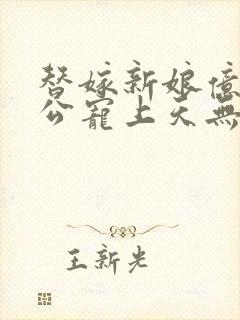 替嫁新娘億
公寵上天無
王新光